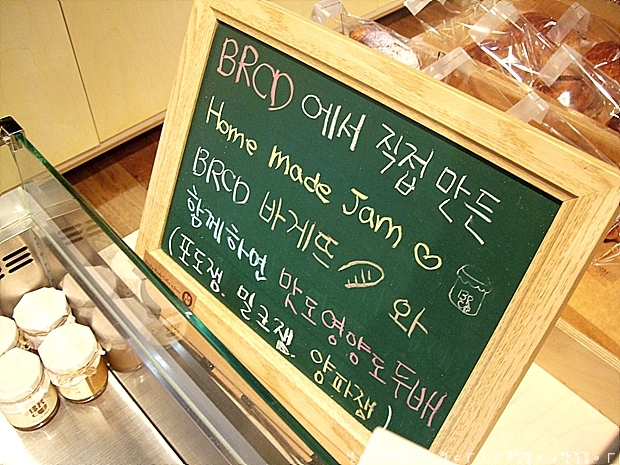 BRCD 에서 직접 만든
Home made Jam ♡
BRCD 바게뜨 와
함께하면 맛도영양도두배
(포도잼. 밀크잼. 양파잼)